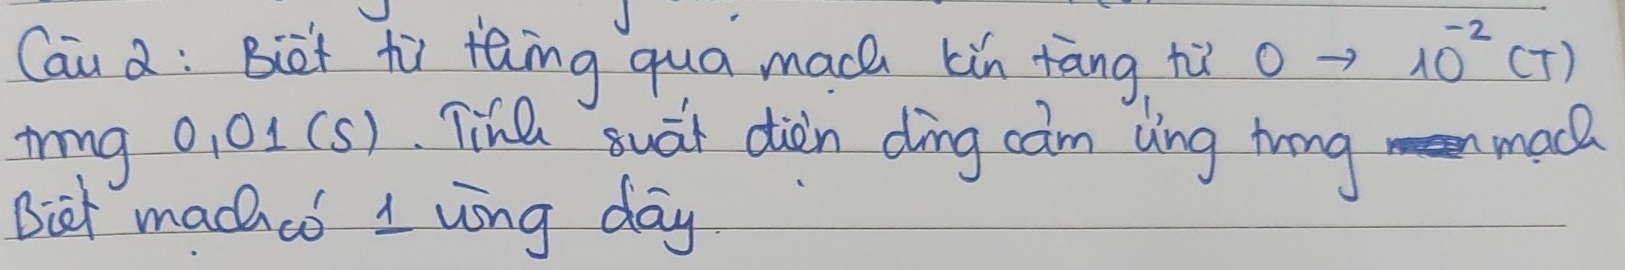 Câu 2: Biết từ thông qua mạch kín tăng từ 0 → 10⁻² (T)
trong 0,01 (s). Tính suất điện động cảm ứng trong mạch
Biết mạch có 1 vòng dây.